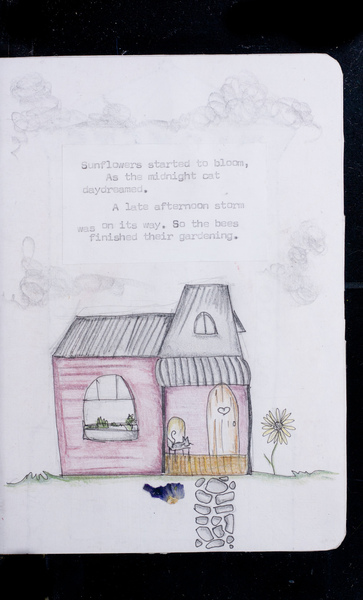 Sunflowers started to bloom,
As the midnight cat
daydreamed.
A late afternoon storm
was on its way. So the bees
finished their gardening.